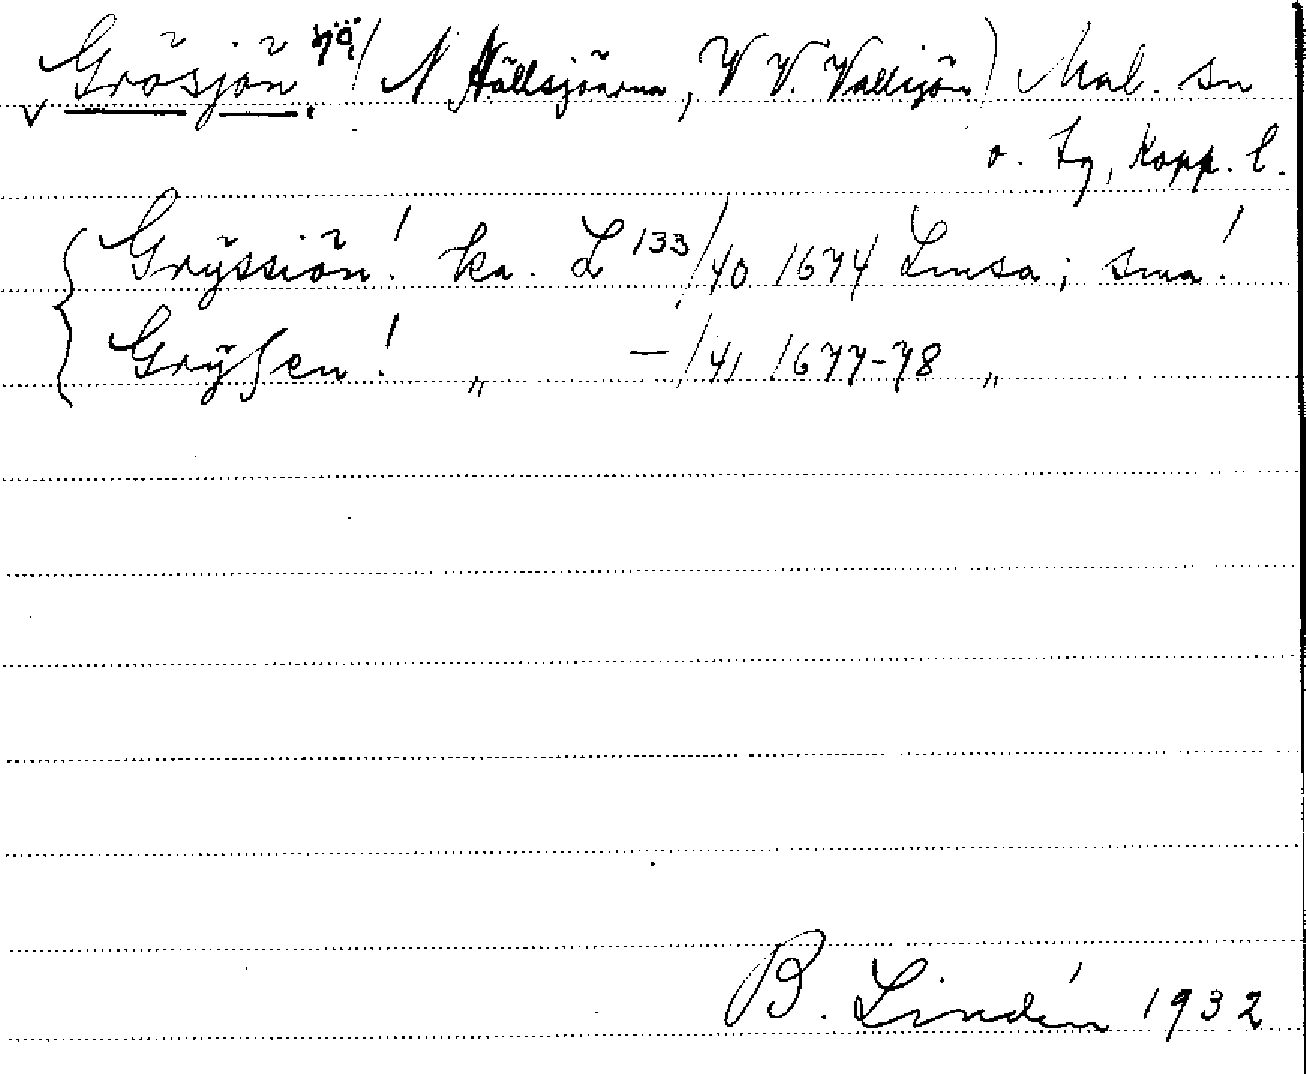 Grösjön. sjö (N Hällsjöarna, V V. Vallsjön) Mal. sn
o. tg, Kopp. l.
Grÿssiön! ka. L 133/40 1674 Limsa; sma!
Grÿßen! „ —/41 1677-78 „
B. Lindén 1932